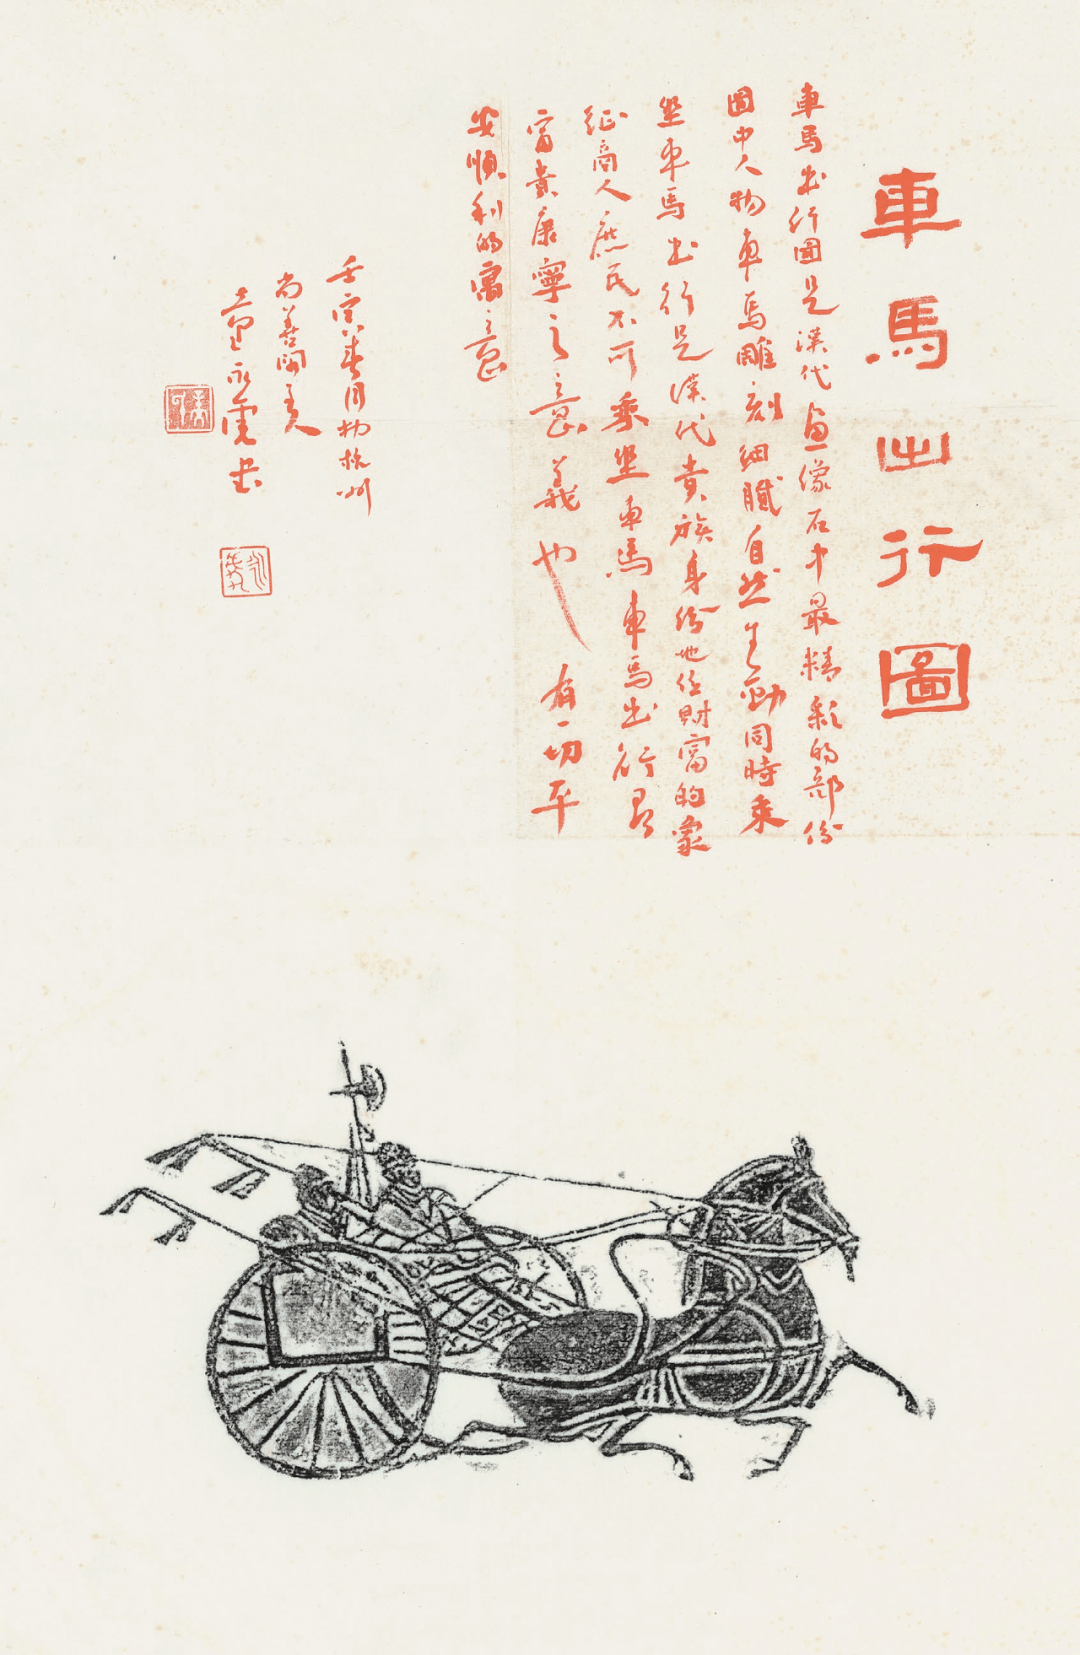 車馬出行圖
車馬出行圖是漢代畫像石中最精彩的部份
圖中人物車馬雕刻細膩自然生動同時乘
坐車馬出行是漢代貴族身份地位財富的象
征商人庶民不可乘坐車馬車馬出行即
富貴康寧之意義也有一切平
安順利的寓意
壬寅春月於杭州
尚善聞美人
童永虎書